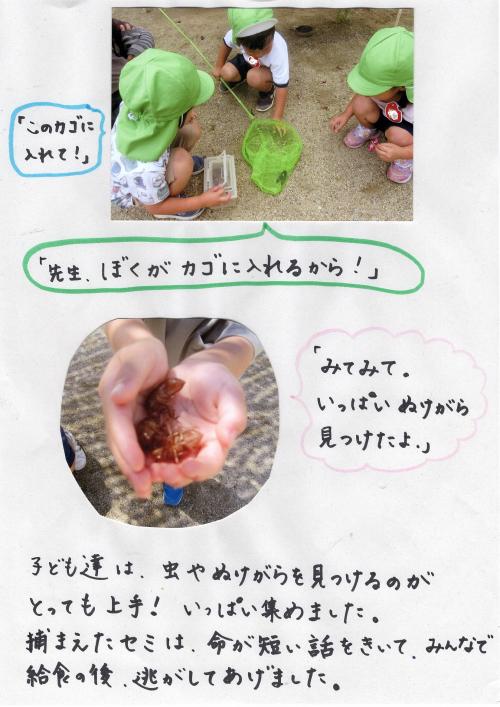 「このカゴに
入れて!」
「先生、ぼくが カゴに入れるから!」
「みてみて。
いっぱい ぬけがら
見つけたよ。」
子ども達は、虫やぬけがらを見つけるのが
とっても上手! いっぱい集めました。
捕まえたセミは、命が短い話をきいて、みんなで
給食の後、逃がしてあげました。